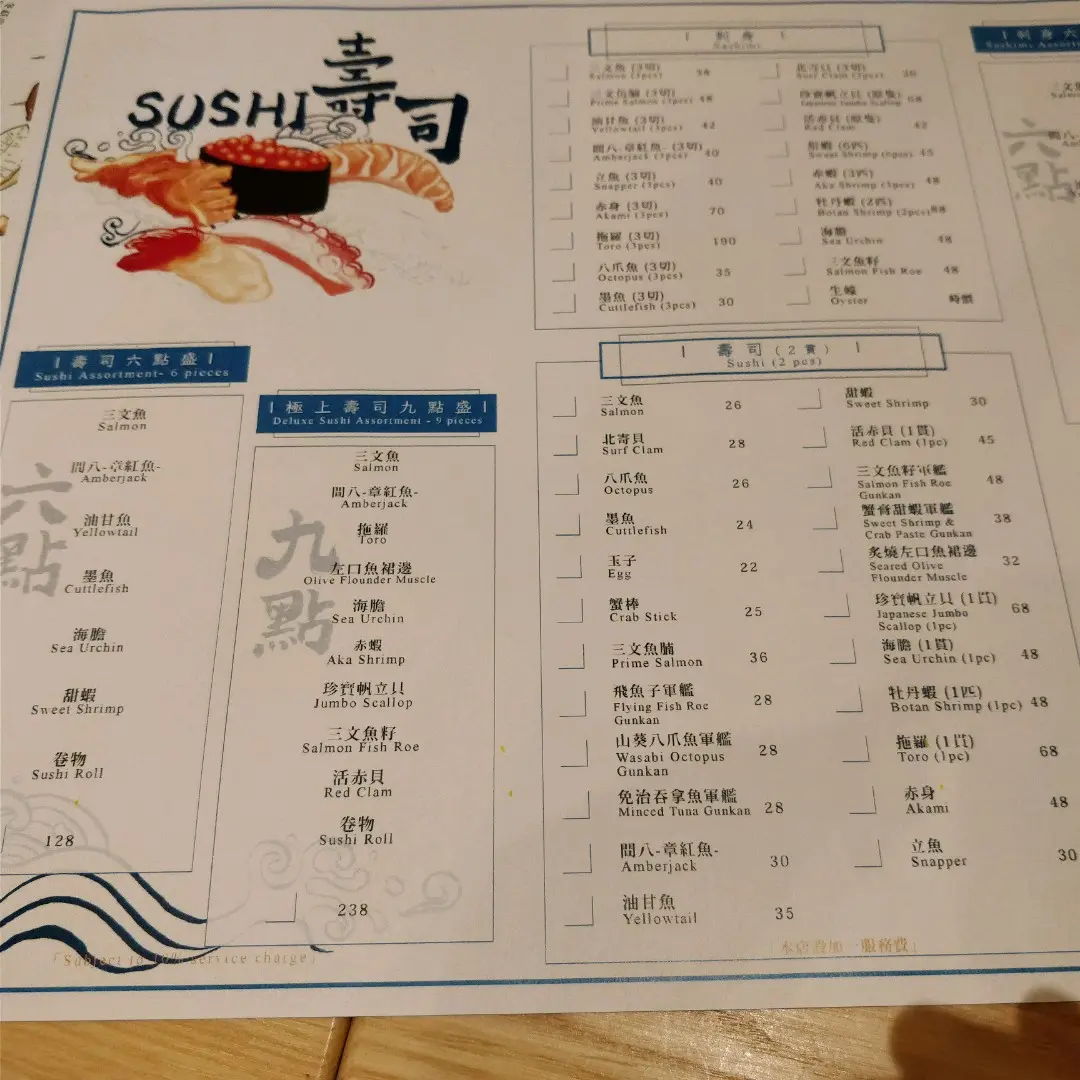 SUSHI 壽司
| 刺身 |
Sashimi
三文魚 (3切)
Salmon (3pcs) 38
三文魚腩 (3切)
Prime Salmon (3pcs) 48
油甘魚 (3切)
Yellowtail (3pcs) 42
間八-章紅魚- (3切)
Amberjack (3pcs) 40
立魚 (3切)
Snapper (3pcs) 40
赤身 (3切)
Akami (3pcs) 70
拖羅 (3切)
Toro (3pcs) 190
八爪魚 (3切)
Octopus (3pcs) 35
墨魚 (3切)
Cuttlefish (3pcs) 30
北寄貝 (3切)
Surf Clam (3pcs)
珍寶帆立貝 (原隻)
Japanese Jumbo Scallop 68
活赤貝 (原隻)
Red Clam 42
甜蝦 (6匹)
Sweet Shrimp (6pcs) 45
赤蝦 (3匹)
Aka Shrimp (3pcs) 48
牡丹蝦 (2匹)
Botan Shrimp (2pcs) 88
海膽
Sea Urchin 48
三文魚籽
Salmon Fish Roe 48
生蠔
Oyster 時價
| 刺身六
Sashimi Assort
六點
| 壽司六點盛 |
Sushi Assortment- 6 pieces
六點
三文魚
Salmon
間八-章紅魚-
Amberjack
油甘魚
Yellowtail
墨魚
Cuttlefish
海膽
Sea Urchin
甜蝦
Sweet Shrimp
卷物
Sushi Roll
128
| 極上壽司九點盛 |
Deluxe Sushi Assortment - 9 pieces
九點
三文魚
Salmon
間八-章紅魚-
Amberjack
拖羅
Toro
左口魚裙邊
Olive Flounder Muscle
海膽
Sea Urchin
赤蝦
Aka Shrimp
珍寶帆立貝
Jumbo Scallop
三文魚籽
Salmon Fish Roe
活赤貝
Red Clam
卷物
Sushi Roll
238
| 壽司 (2貫) |
Sushi (2 pcs)
三文魚
Salmon 26
北寄貝
Surf Clam 28
八爪魚
Octopus 26
墨魚
Cuttlefish 24
玉子
Egg 22
蟹棒
Crab Stick 25
三文魚腩
Prime Salmon 36
飛魚子軍艦
Flying Fish Roe 28
Gunkan
山葵八爪魚軍艦
Wasabi Octopus 28
Gunkan
免治吞拿魚軍艦
Minced Tuna Gunkan 28
間八-章紅魚-
Amberjack 30
油甘魚
Yellowtail 35
甜蝦
Sweet Shrimp 30
活赤貝 (1貫)
Red Clam (1pc) 45
三文魚籽軍艦
Salmon Fish Roe 48
Gunkan
蟹膏甜蝦軍艦
Sweet Shrimp & 38
Crab Paste Gunkan
炙燒左口魚裙邊
Seared Olive 32
Flounder Muscle
珍寶帆立貝 (1貫)
Japanese Jumbo 68
Scallop (1pc)
海膽 (1貫)
Sea Urchin (1pc) 48
牡丹蝦 (1匹)
Botan Shrimp (1pc) 48
拖羅 (1貫)
Toro (1pc) 68
赤身
Akami 48
立魚
Snapper 30
「Subject to 10% service charge」
「本店設加一服務費」